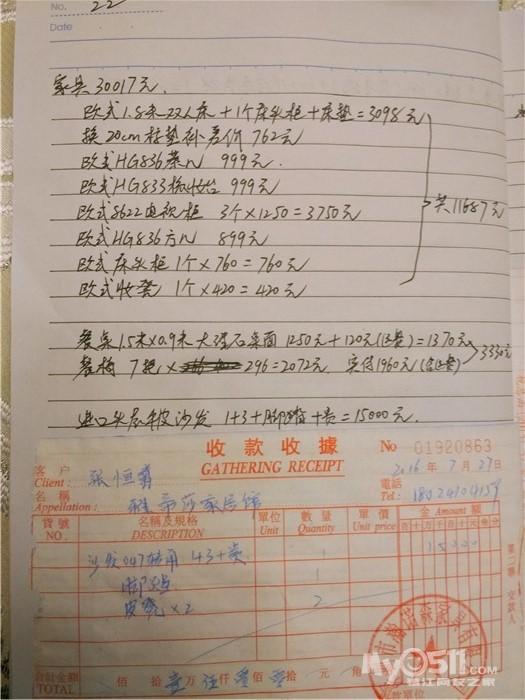 No. 22
Date
家具30017元.
欧式1.8米双人床+1个床头柜+床垫=3098元
换20cm 床垫补差价762元
欧式HG836茶几 999元.
欧式HG833梳妆台 999元
欧式8622电视柜 3个×1250=3750元
欧式HG836方几 899元
欧式床头柜1个×760=760元
欧式妆凳 1个×420=420元
共11687元
餐桌1.5米×0.9米大理石桌面1250元+120元()=1370元
餐椅 7把× 296=2072元. 实付1960元()
3330元
进口头层牛皮沙发 1+3+脚踏+贵=15000元.
收款收據
GATHERING RECEIPT
No 01920863
2016年7月27日
客户
Client: 张恒
名稱
Appellation:
電話
Tel:
貨號
NO.
名稱及規格
DESCRIPTION
單位
Unit
數量
Quantity
單價
Unit price
金 Amount 額
百十萬千百十元角分
沙发047 1+3+贵
1
15000
脚踏
1
×2
2
第二聯 交款人
合計金額
TOTAL
佰 拾 壹万伍仟零佰零拾 元 角
交款單位
My0511.com
镇江网友之家